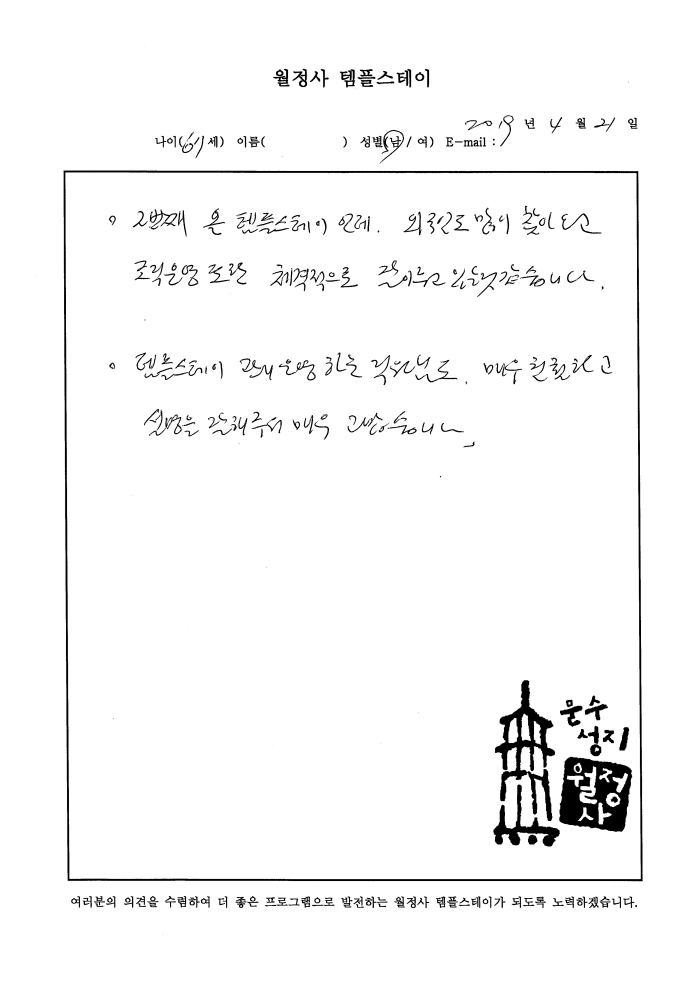 월정사 템플스테이
2019 년 4 월 21 일
나이(61세) 이름( ) 성별(남 / 여) E-mail :
2번째 온 템플스테이 인데. 외국인도 많이 찾아 오고
조직운영 또한 체격적으로 잘이루고 있는것같습니다.
템플스테이 운영 하는 직원님도. 매우 친절하고
설명을 잘해주셔 매우 고맙습니다
문수
성지
월정
사
여러분의 의견을 수렴하여 더 좋은 프로그램으로 발전하는 월정사 템플스테이가 되도록 노력하겠습니다.